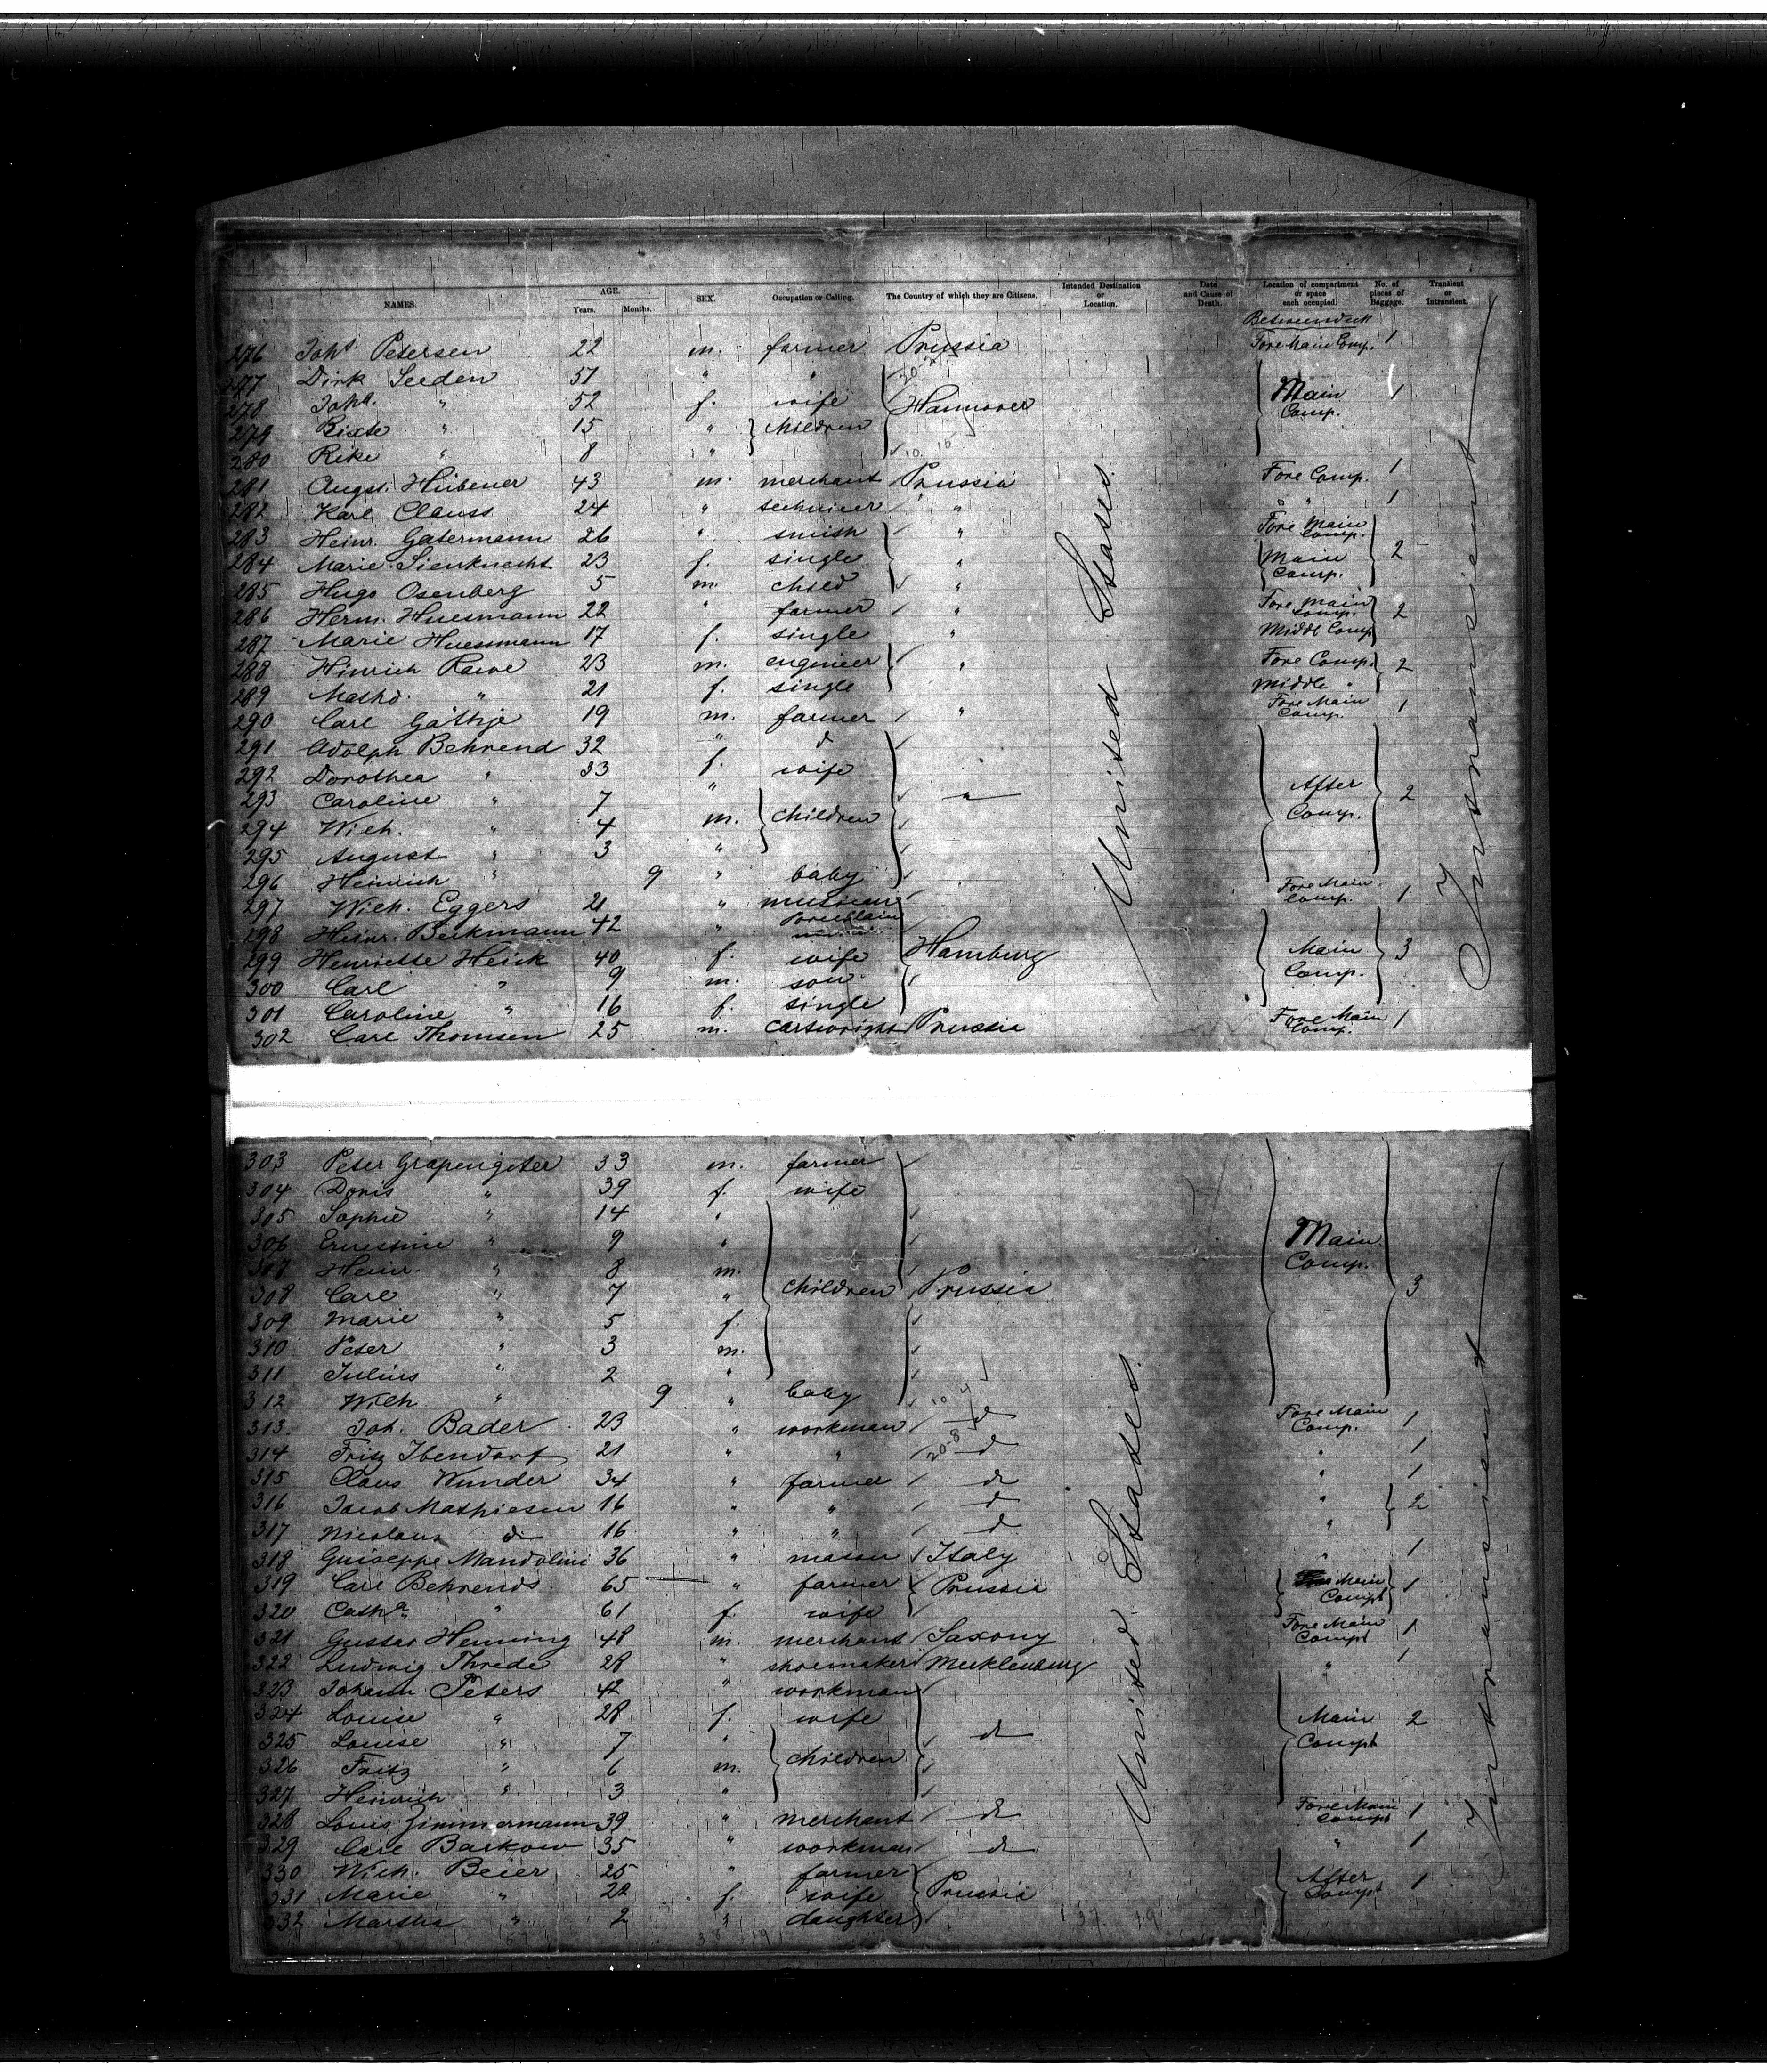 NAMES. AGE. Years. Months. SEX. Occupation or Calling. The Country of which they are Citizens. Intended Destination or Location. Date and Cause of Death. Location of compartment or space each occupied. No. of pieces of Baggage. Transient or Intransient.
276 Joh. Petersen 22 m. farmer Prussia Fore Main Comp. 1
277 Dirk Seeden 51 " "
278 Joha. " 52 f. wife Hannover Main Comp. 1
279 " 15 " children
280 Rike " 8 "
281 Augst. Hübener 43 m. merchant Prussia Fore Comp. 1
282 Karl Clauss 24 " " " " 1
283 Heinr. Gatermann 26 " smith " Fore Main Comp. 2
284 Marie Sienknecht 23 f. single " Main Comp.
285 Hugo Osenberg 5 m. child "
286 Herm. Huesmann 22 " farmer " Fore Main Comp. 2
287 Marie Huesmann 17 f. single " Middl Comp
288 Hinrich Rawe 23 m. engineer " Fore Comp. 2
289 Mathd. " 21 f. single Middle "
290 Carl Gäthje 19 m. farmer " Fore Main Comp. 1
291 Adolph Behrend 32 " d
292 Dorothea " 33 f. wife
293 Caroline " 7 " children " After Comp. 2
294 Wilh. " 4 m.
295 August " 3 "
296 Heinrich " 9 " baby
297 Wilh. Eggers 21 " musician Fore Main Comp. 1
298 Heinr. Berkmann 42 "
299 Henriette Heick 40 f. wife Hamburg Main Comp. 3
300 Carl " 9 m. son
301 Caroline " 16 f. single
302 Carl Thomsen 25 m. cartwright Prussia Fore Main Comp. 1
United States
Intransient
303 Peter Grapengeter 33 m. farmer
304 Doris " 39 f. wife
305 Sophie " 14 "
306 Ernestine " 9 " Main Comp.
307 Heinr. " 8 m.
308 Carl " 7 " children Prussia 3
309 Marie " 5 f.
310 Peter " 3 m.
311 Julius " 2 "
312 Wilh " 9 " baby
313 Joh. Bader 23 " workman d Fore Main Comp. 1
314 Fritz Ibendorf 21 " " d " 1
315 Claus Wunder 34 " farmer d " 1
316 Jacob Mathiesen 16 " " d " 2
317 Nicolaus d 16 " " d "
318 Guiseppe Mandolini 36 " mason Italy " 1
319 Carl Behrends 65 " farmer Prussia Main Compt 1
320 Catha. " 61 f. wife
321 Gustav Henning 48 m. merchant Saxony Fore Main Compt 1
322 Ludwig Threde 28 " shoemaker Mecklenburg " 1
323 Johann Peters 42 " workman
324 Louise " 28 f. wife Main Compt 2
325 Louise " 7 " children d
326 Fritz " 6 m.
327 Heinrich " 3 "
328 Louis Zimmermann 39 " merchant d Fore Main Compt 1
329 Carl Barkow 35 " workman d " 1
330 Wilh. Beier 25 " farmer
331 Marie " 22 f. wife Prussia After Compt 1
332 Martha " 2 " daughter
United States
Intransient